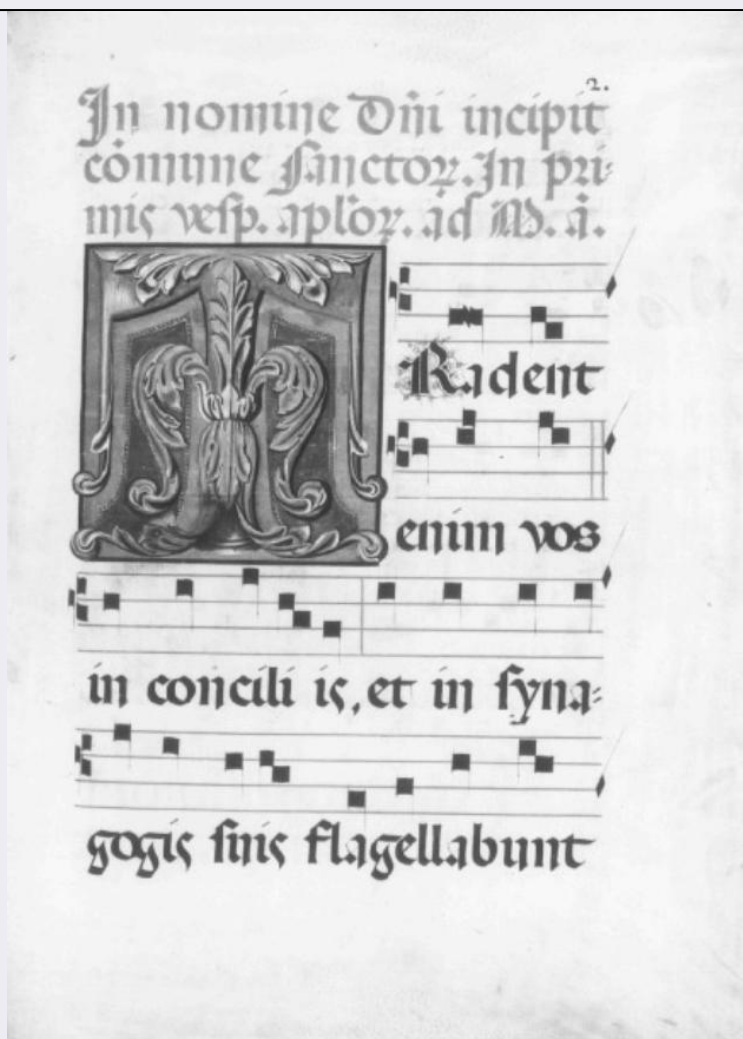 2.
In nomine Dñi incipit
cõmune sanctoꝝ. In pri-
mis vesp. apl'oꝝ. ad M. ã.
TRadent
enim vos
in concili is, et in syna-
gogis suis flagellabunt